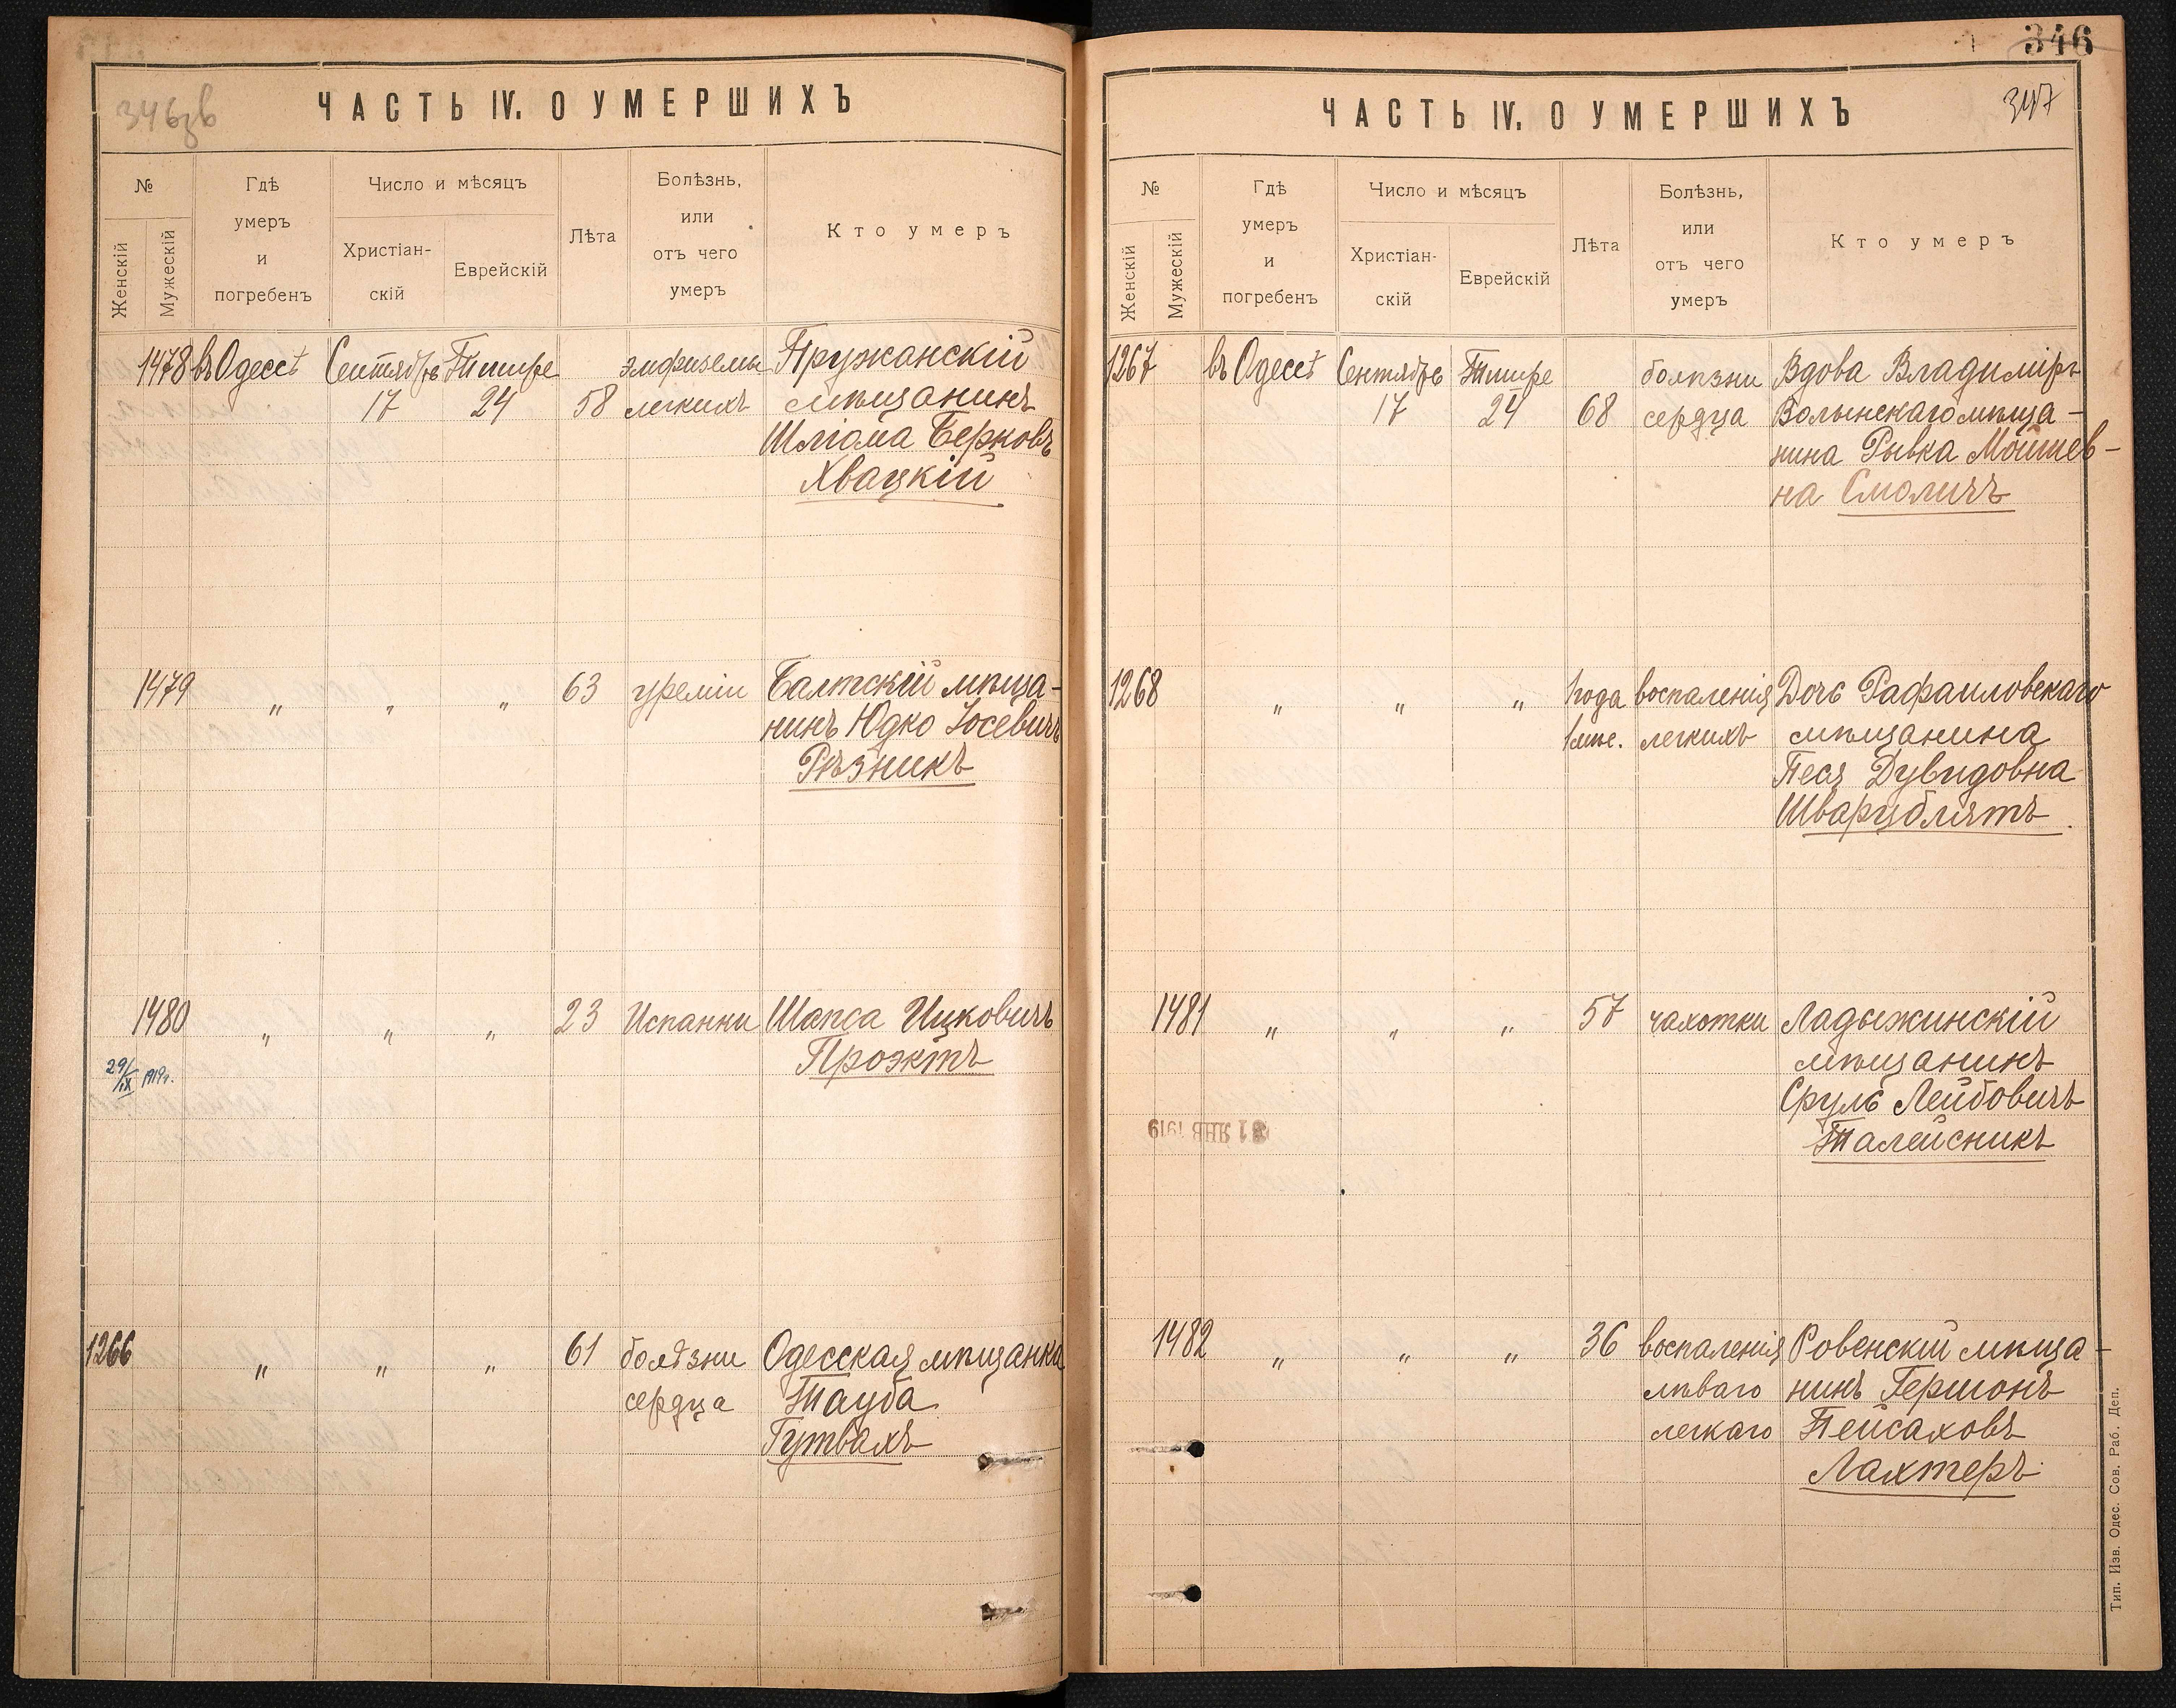 346зв
ЧАСТЬ IV. О УМЕРШИХЪ
№
Женскій
Мужескій
Гдѣ
умеръ
и
погребенъ
Число и мѣсяцъ
Христіан-
скій
Еврейскій
Лѣта
Болѣзнь,
или
отъ чего
умеръ
Кто умеръ
1478 въ Одессѣ Сентябрь Тишре эмфиземы Пружанскій
17 24 58 легкихъ мѣщанинъ
Шлiома Берковъ
Хвацкій
1479 " " " 63 уреміи Балтскій мѣща-
нинъ Юдко Іосевичъ
Рѣзникъ
1480 " " " 23 Испанки Шапса Ицковичъ
29/IX 1919г. Проэктъ
1266 " " " 61 болѣзни Одесская мѣщанка
сердца Тауба
Гутвахъ
346
347
ЧАСТЬ IV. О УМЕРШИХЪ
№
Женскій
Мужескій
Гдѣ
умеръ
и
погребенъ
Число и мѣсяцъ
Христіан-
скій
Еврейскій
Лѣта
Болѣзнь,
или
отъ чего
умеръ
Кто умеръ
1267 въ Одессѣ Сентябрь Тишре болѣзни Вдова Владиміръ
17 24 68 сердца Волынскаго мѣща-
нина Рывка Мойшев-
на Смоличъ
1268 " " " 1 года воспаленія Дочь Рафаиловскаго
1 мѣс. легкихъ мѣщанина
Песя Дувидовна
Шварцблятъ
1481 " " " 57 чахотки Ладыжинскій
мѣщанинъ
Сруль Лейбовичъ
31 ЯНВ 1919 Талейсникъ
1482 " " " 36 воспаленія Ровенскій мѣща-
лѣваго нинъ Гершонъ
легкаго Пейсаховъ
Лахтеръ
Тип. Изв. Одес. Сов. Раб. Деп.